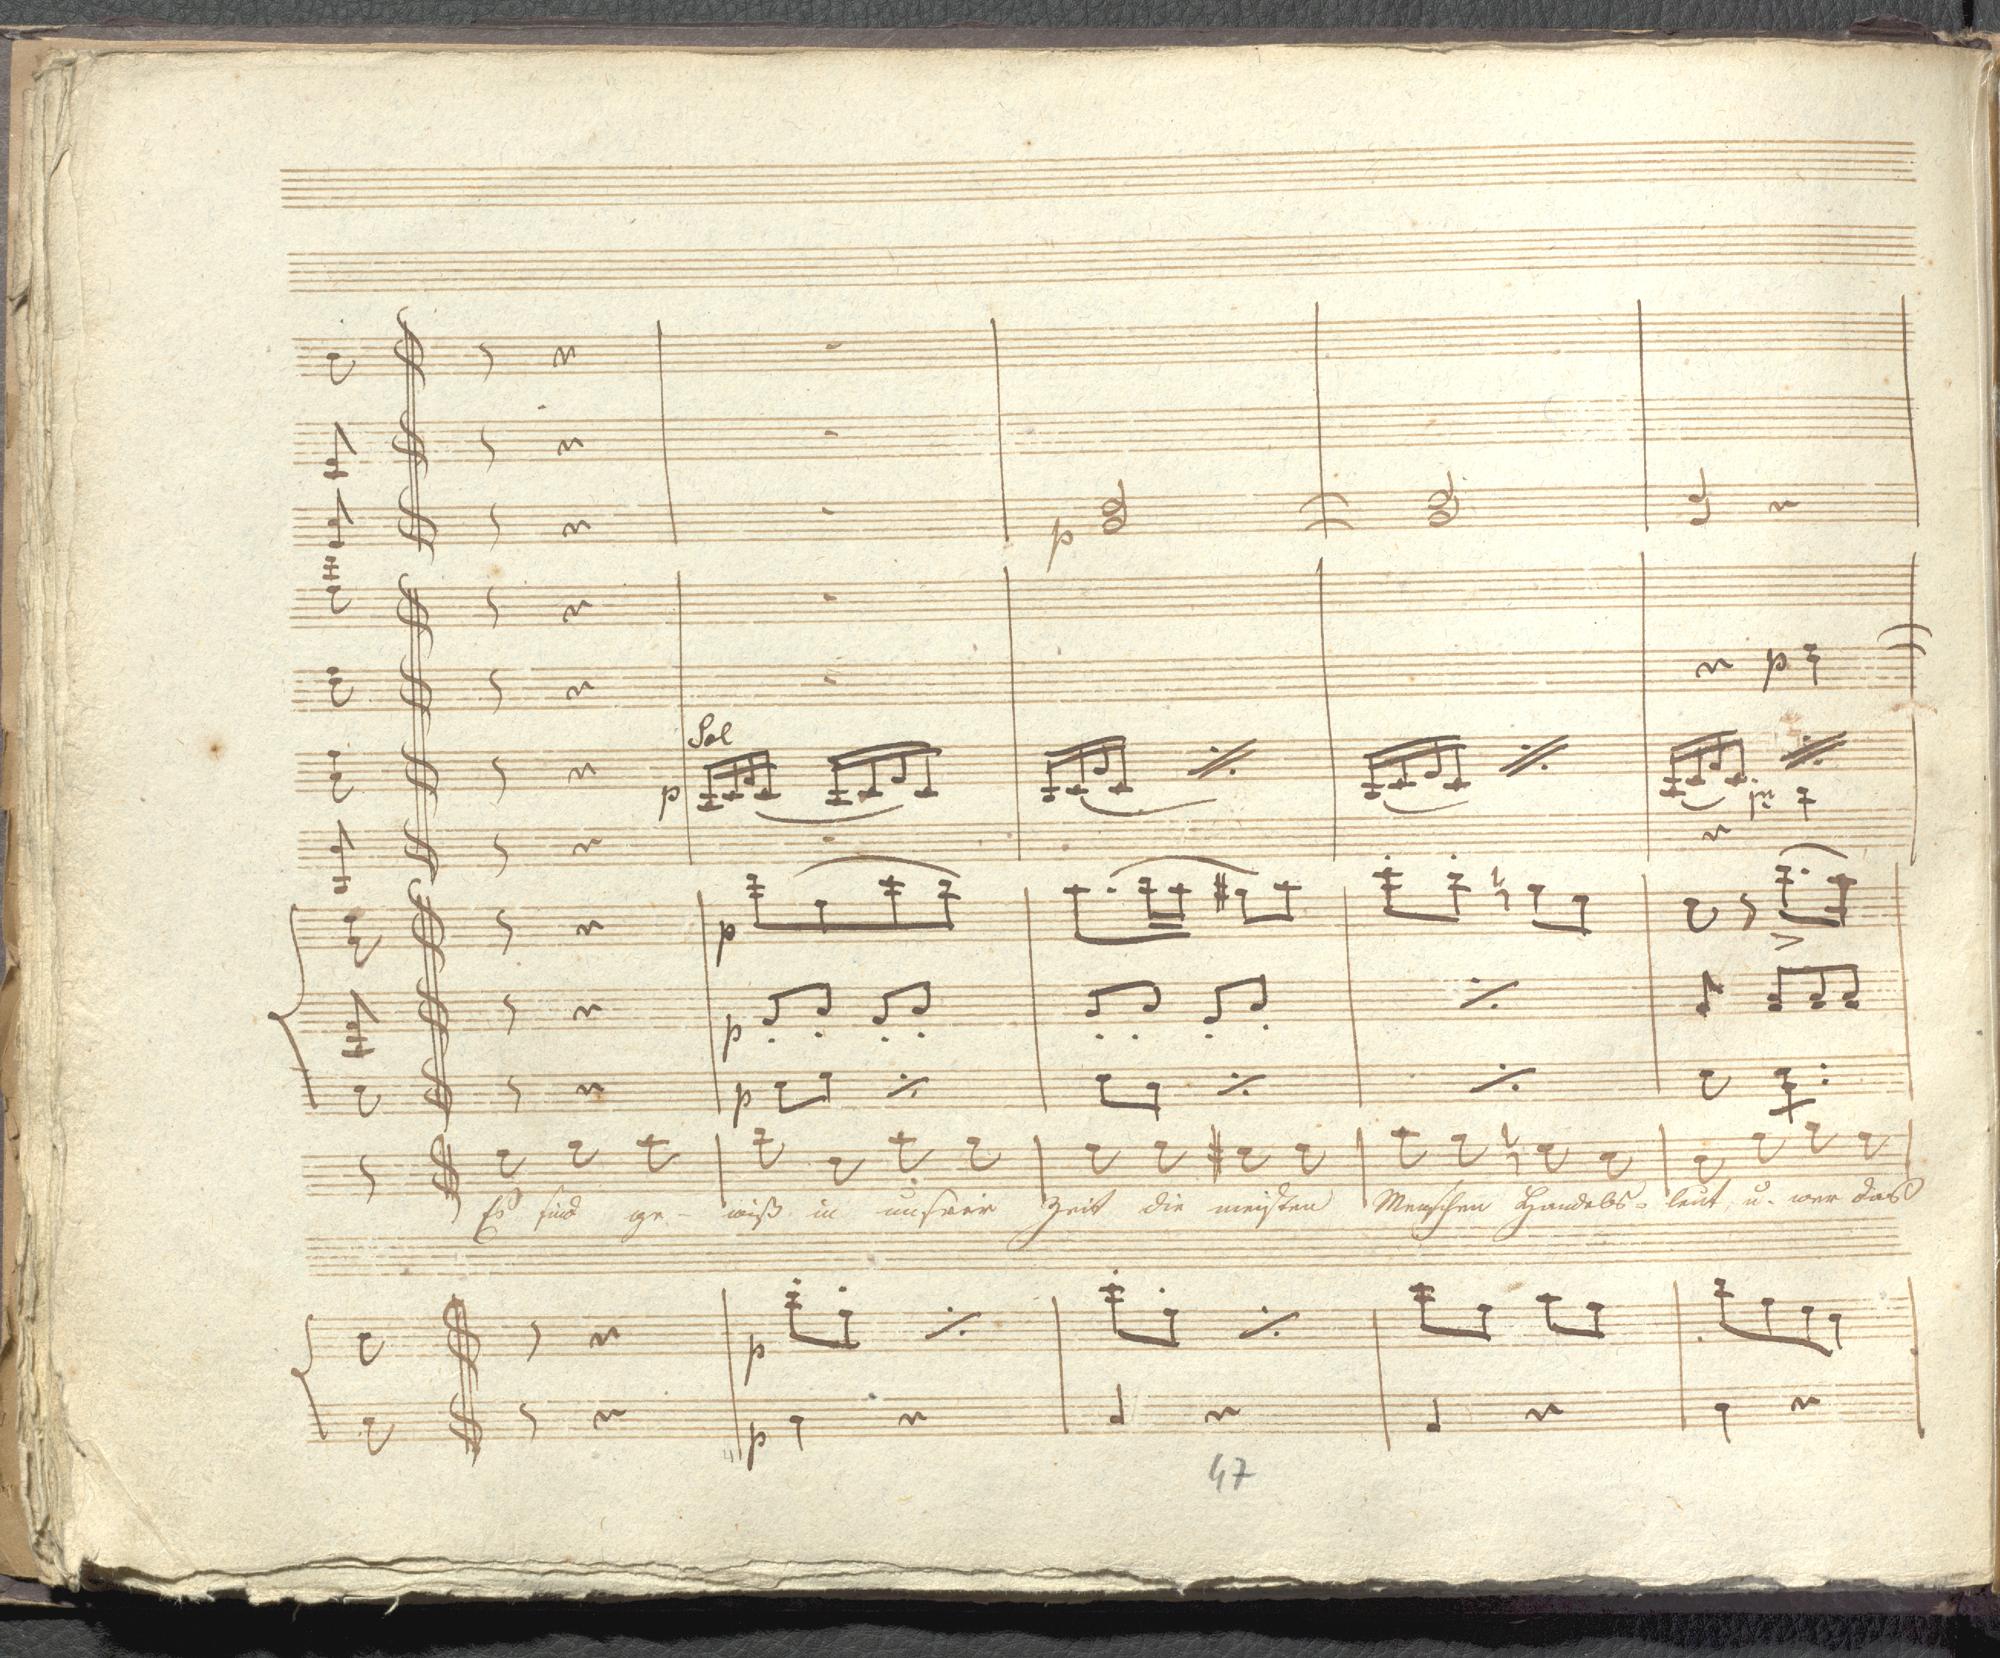 Sol
p
p
p
pp
p
p
p
Es sind ge- wiß in unsrer Zeit die meisten Menschen Handels- leut, u. wer das
p
p
47